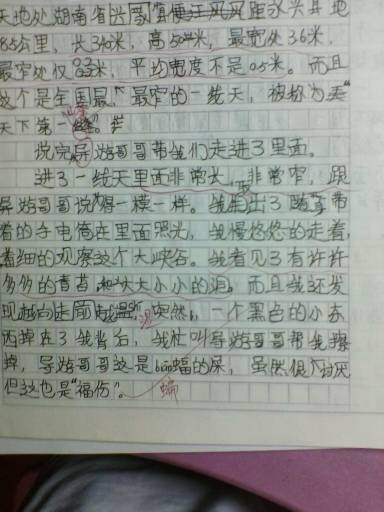 天地处湖南省
85公里，长340米，高50米，最宽处3.6米，
最窄处仅0.33米，平均宽度不足0.5米。而且
这个是全国最长，最窄的一线天，被称为"
天下第一
说完导游哥哥带我们走进了里面。
进了一线天里面非常长，非常窄，跟
导游哥哥说得一模一样。我出了随带
着的手电筒在里面照光，我慢悠悠的走着，
着细的观察这个大峡谷。我看见了有许许
多多的青苔，和大大小小的洞，而且我还发
现越向走越，突然，一个黑色的小东
西掉在了我背后，我忙叫导游哥哥帮我擦
掉，导游哥哥这是bian蝠的屎，虽然很讨厌
但这也是"福伤"。 蝙